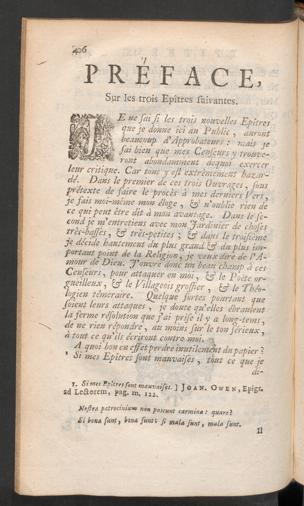 406
PRÉFACE,
Sur les trois Epitres suivantes.
JE ne sai si les trois nouvelles Epitres
que je donne ici au Public, auront
beaucoup d'Approbateurs: mais je
sai bien que mes Censeurs y trouve-
ront abondamment dequoi exercer
leur critique. Car tout y est extrémement hazar-
dé. Dans le premier de ces trois Ouvrages, sous
prétexte de faire le procès à mes derniers Vers,
je fais moi-même mon éloge, & n'oublie rien de
ce qui peut être dit à mon avantage. Dans le se-
cond je m'entretiens avec mon Jardinier de choses
très-basses, & très-petites; & dans le troisième
je décide hautement du plus grand & du plus im-
portant point de la Religion, je veux dire de l'A-
mour de Dieu. J'ouvre donc un beau champ à ces
Censeurs, pour attaquer en moi, & le Poëte or-
gueilleux, & le Villageois grossier, & le Théo-
logien téméraire. Quelque fortes pourtant que
soient leurs attaques, je doute qu'elles ébranlent
la ferme résolution que j'ai prise il y a long-tems,
de ne rien répondre, au moins sur le ton sérieux,
à tout ce qu'ils écriront contre moi.
A quoi bon en effet perdre inutilement du papier?
¹ Si mes Epitres sont mauvaises, tout ce que je
di-
1. Si mes Epitres sont mauvaises. ] JOAN. OWEN, Epigr.
ad Lectorem, pag. m. 122.
Nostra patrocinium non poscunt carmina: quare?
Si bona sunt, bona sunt: si mala sunt, mala sunt.
II